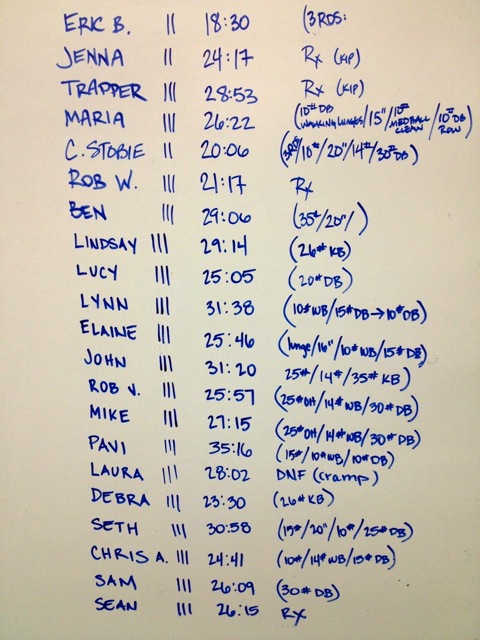 ERIC B. || 18:30 (3RDS:
JENNA || 24:17 Rx (KIP)
TRAPPER ||| 28:53 Rx (KIP)
MARIA ||| 26:22 (10# DB WALKING LUNGES/15"/10# MED BALL CLEAN/10# DB ROW)
C. STOBIE || 20:06 (3RDS/18#/20"/14#/30# DB)
ROB W. ||| 21:17 Rx
BEN ||| 29:06 (35#/20"/ )
LINDSAY ||| 29:14 (26# KB)
LUCY ||| 25:05 (20# DB)
LYNN ||| 31:38 (10# WB/15# DB→10# DB)
ELAINE ||| 25:46 (lunge/16"/10# WB/15# DB)
JOHN ||| 31:20 25#/14#/35# KB)
ROB V. ||| 25:57 (25# OH/14# WB/30# DB)
MIKE ||| 27:15 (25# OH/14# WB/30# DB)
PAVI ||| 35:16 (15#/10# WB/10# DB)
LAURA ||| 28:02 DNF (cramp)
DEBRA ||| 23:30 (26# KB)
SETH ||| 30:58 (15#/20"/10#/25# DB)
CHRIS A. ||| 24:41 (10#/14# WB/15# DB)
SAM ||| 26:09 (30# DB)
SEAN ||| 26:15 Rx